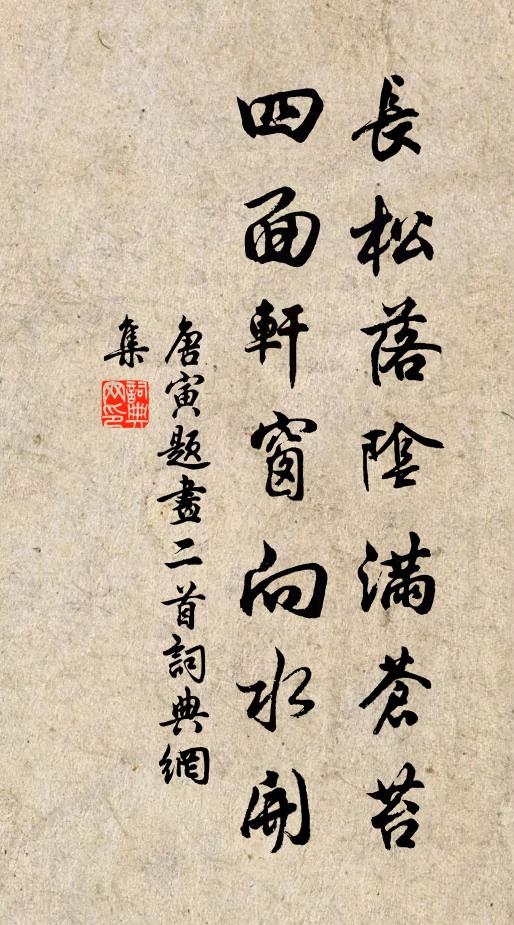 長松落陰滿蒼苔
四面軒窗向水開
唐寅題畫二首詞典網
集
詞典
网印